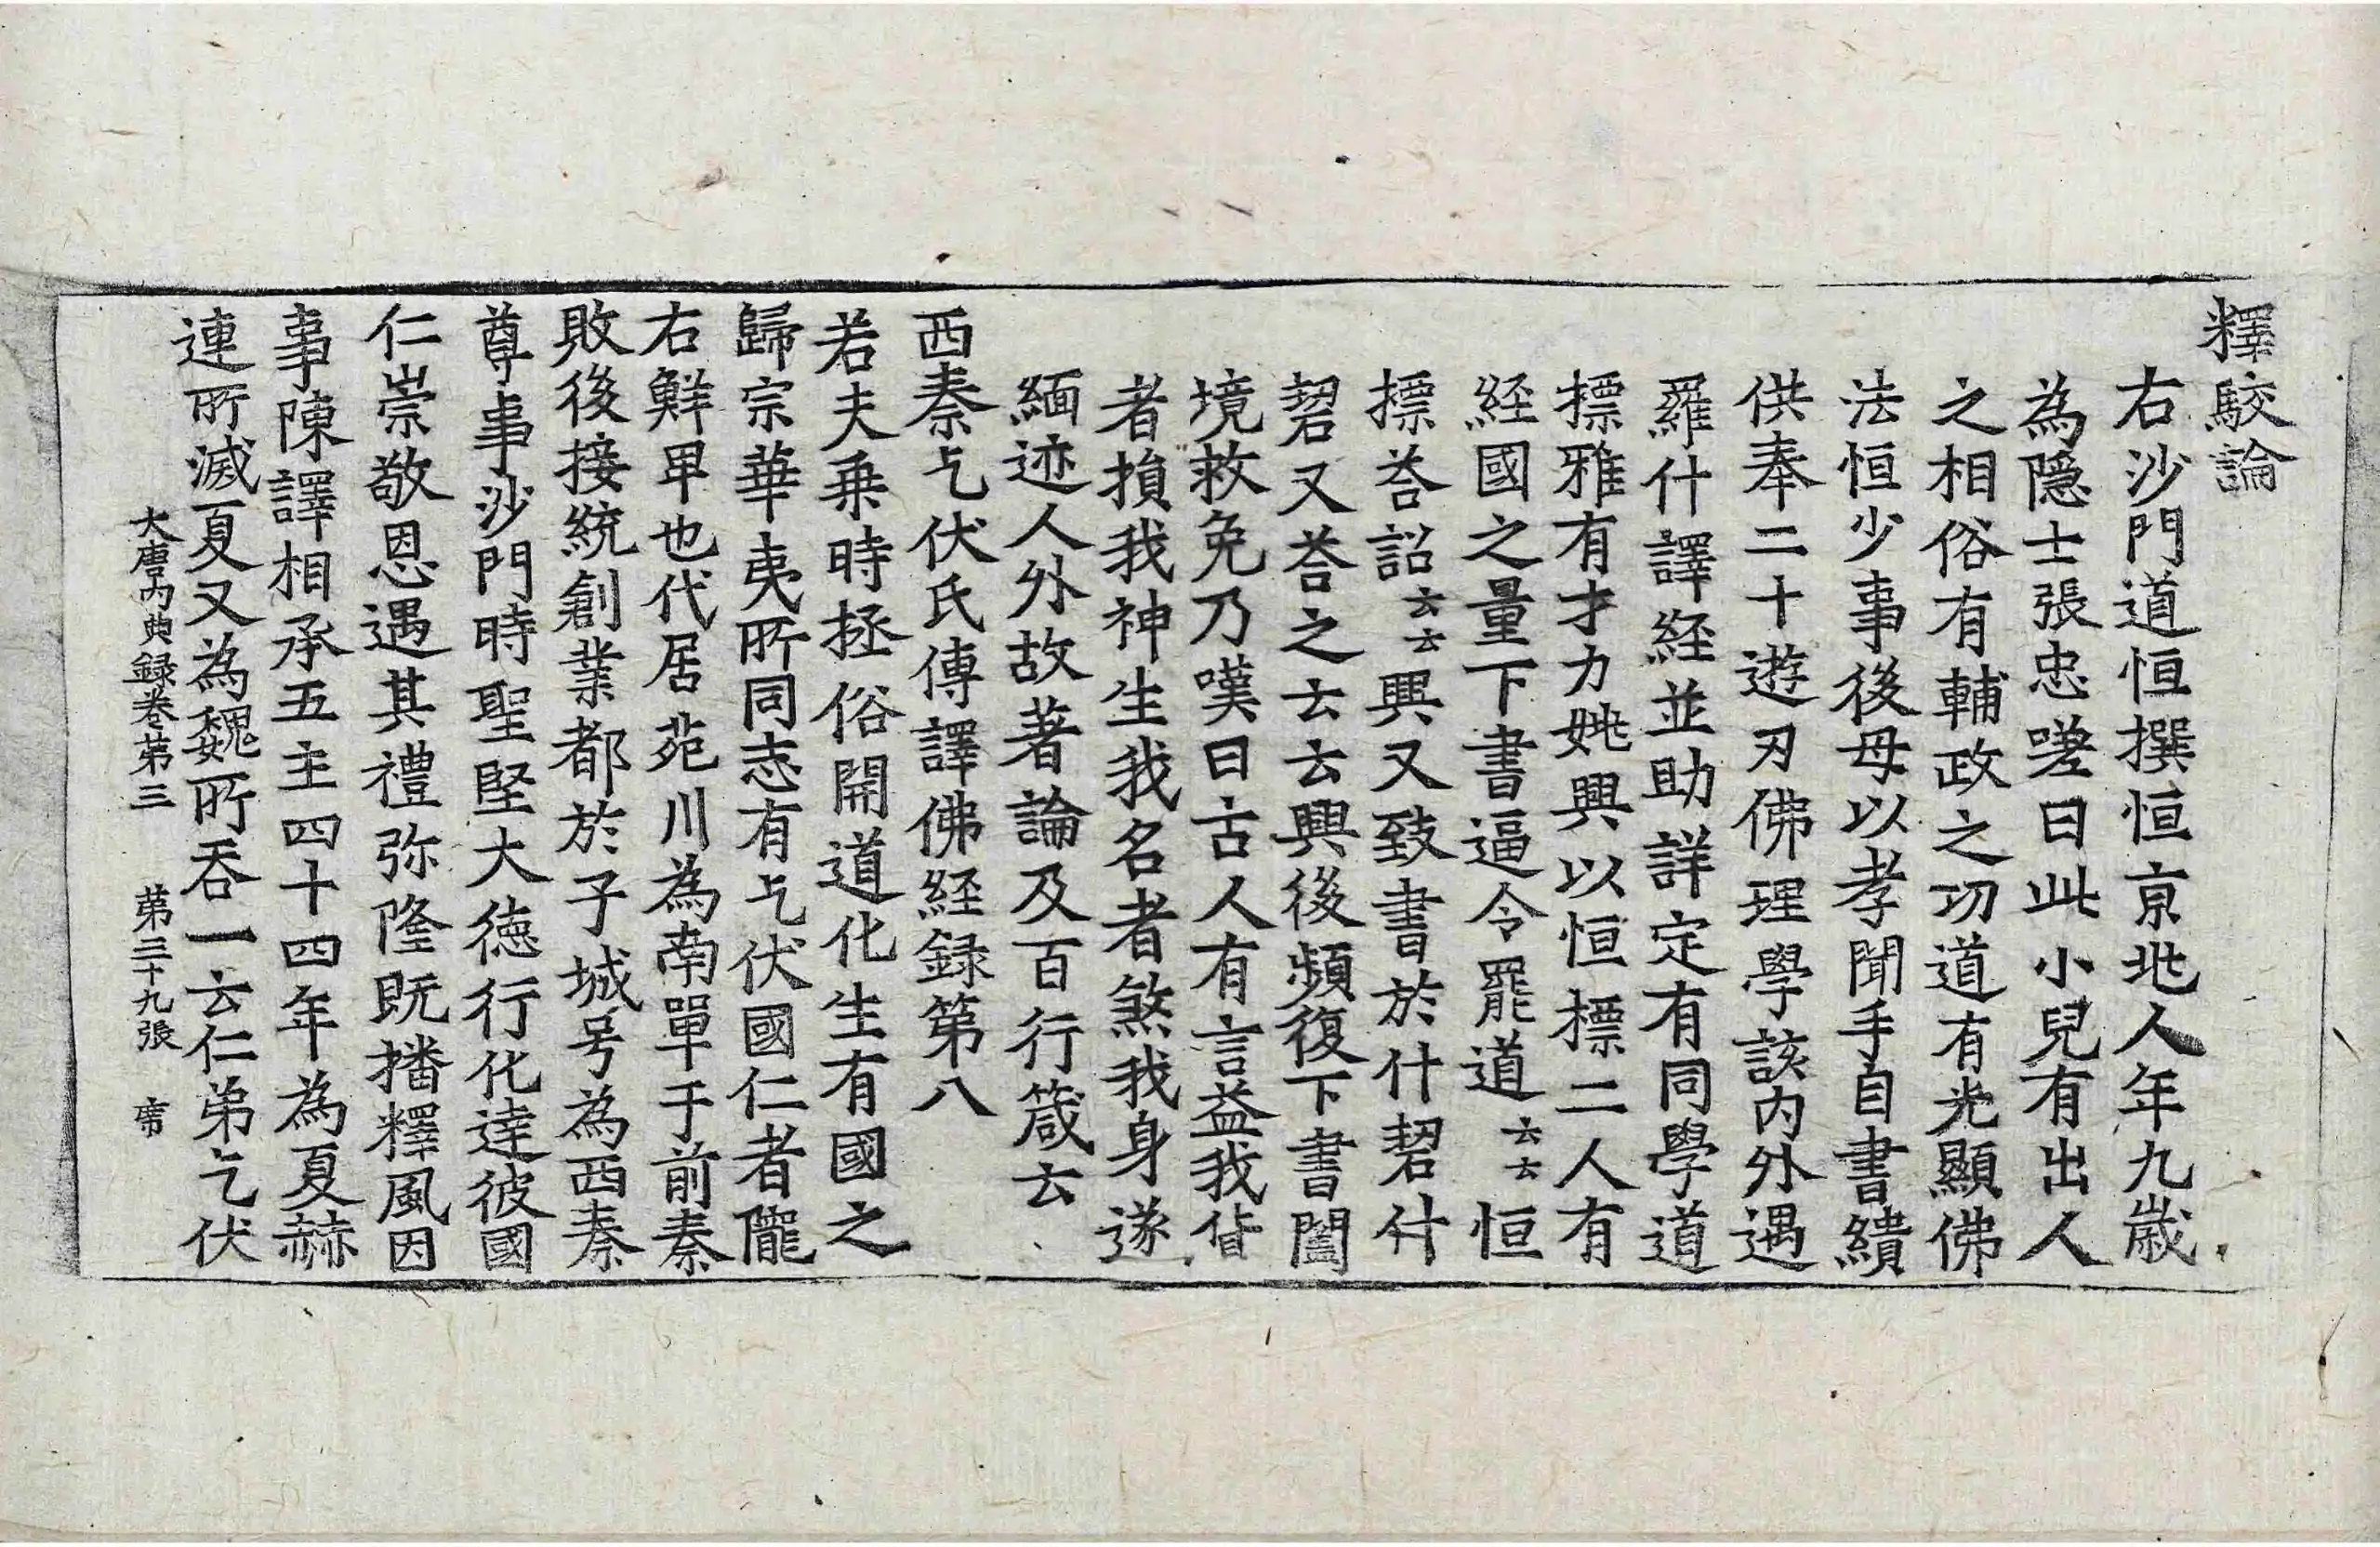 釋駮論
右沙門道恒撰恒京兆人年九歲
為隱士張忠嗟曰此小兒有出人
之相俗有輔政之功道有光顯佛
法恒少事後母以孝聞手自書繢
供奉二十遊刃佛理學該內外遇
羅什譯経並助詳定有同學道
摽雅有才力姚興以恒標二人有
経國之量下書逼令罷道云云恒
摽荅詔云云興又致書於什䂮什
䂮又荅之云云興後頻復下書闔
境救免乃嘆曰古人有言益我貨
者損我神生我名者煞我身遂
緬迹人外故著論及百行箴云
西秦乞伏氏傳譯佛経録第八
若夫乗時拯俗開道化生有國之
歸宗華夷所同志有乞伏國仁者隴
右鮮卑也代居苑川為南單于前秦
敗後接統創業都於子城号為西秦
尊事沙門時聖堅大徳行化達彼國
仁崇敬恩遇其禮弥隆既播釋風因
事陳譯相承五主四十四年為夏赫
連所滅夏又為魏所吞一云仁弟乞伏
大唐內典録卷第三 第三十九張 席